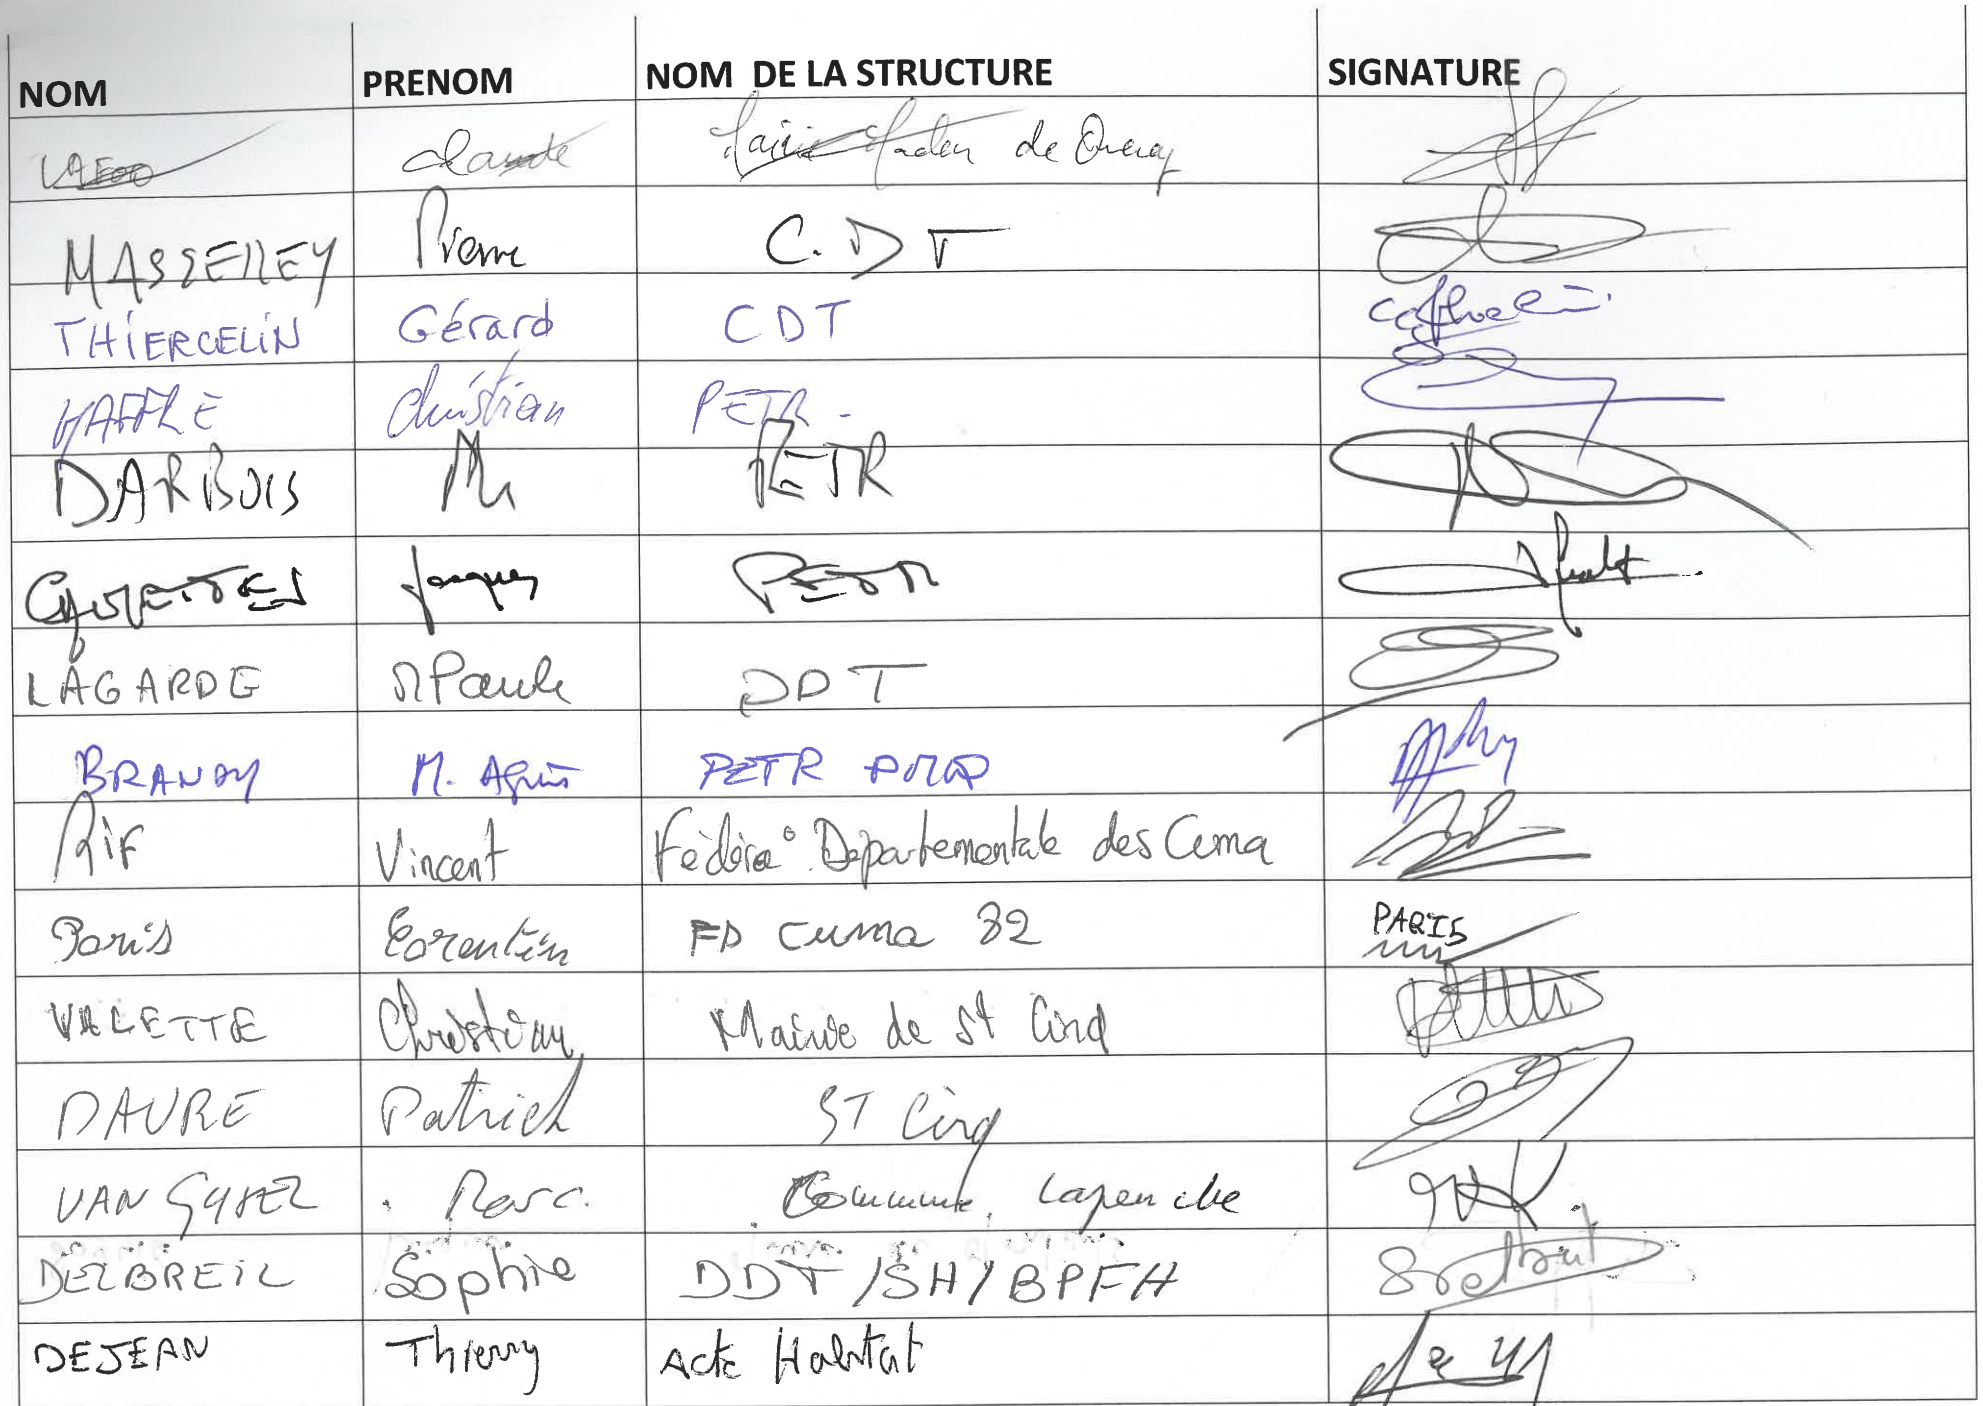 NOM PRENOM NOM DE LA STRUCTURE SIGNATURE
Claude Mairie de Quercy
Pierre C.DT
THIERCELIN Gérard CDT
MAFFRE Christian PETR -
DARBOIS PETR
Jacques PETR
LAGARDE M Paule DDT
M. Agnès PETR
RIF Vincent Fédérᵒ Départementale des Cuma
Paris Corentin FD Cuma 82 PARIS
VALETTE Christian Mairie de St Cirq
DAURE Patrick ST Cirq
VAN Marc. Commune Lapenche
DELBREIL Sophie DDT/SH/BPFH
DEJEAN Thierry Acte Habitat